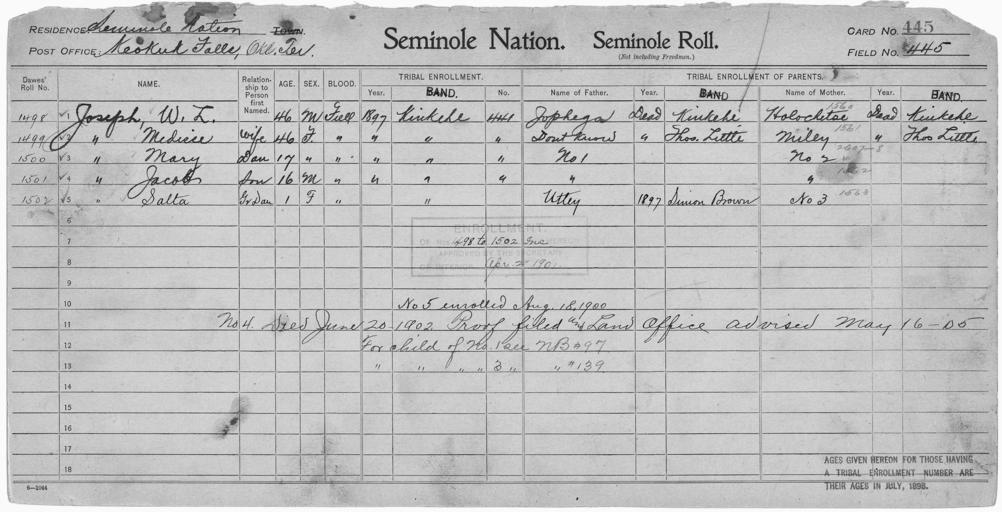 RESIDENCE: Seminole Nation TOWN.
POST OFFICE: Keokuk Falls, Okl. Ter.
Seminole Nation. Seminole Roll.
(Not including Freedmen.)
CARD NO. 445
FIELD NO. 445
Dawes' Roll No. NAME. Relationship to Person first Named. AGE. SEX. BLOOD. TRIBAL ENROLLMENT. TRIBAL ENROLLMENT OF PARENTS.
Year. BAND. No. Name of Father. Year. BAND Name of Mother. Year. BAND.
1498 √1 Joseph, W. L. 46 M Full 1897 Kinkehe 441 Jophega Dead Kinkehe Holochitae 1560 Dead Kinkehe
1499 √2 " Medicse Wife 46 F " " " " Dont know " Thos. Little Miley 1561 " Thos. Little
1500 √3 " Mary Dau 17 " " " " " No 1 No 2
1501 √4 " Jacob Son 16 M " " " " " " 1562
1502 √5 " Salta Gr Dau 1 F " " Utley 1897 Simon Brown No 3 1563
6
ENROLLMENT.
7 OF NOS. 1498 to 1502 Inc HEREON
APPROVED BY THE SECRETARY
8 OF INTERIOR Apr. 2 1901
9
10 No 5 enrolled Aug. 18, 1900
11 No 4. Died June 20-1902 Proof filed and Land Office advised May 16-05
12 For child of No. 1 see NB#97
13 " " " " 3 " " " 139.
14
15
16
17
18
AGES GIVEN HEREON FOR THOSE HAVING
A TRIBAL ENROLLMENT NUMBER ARE
THEIR AGES IN JULY, 1898.
6—2044